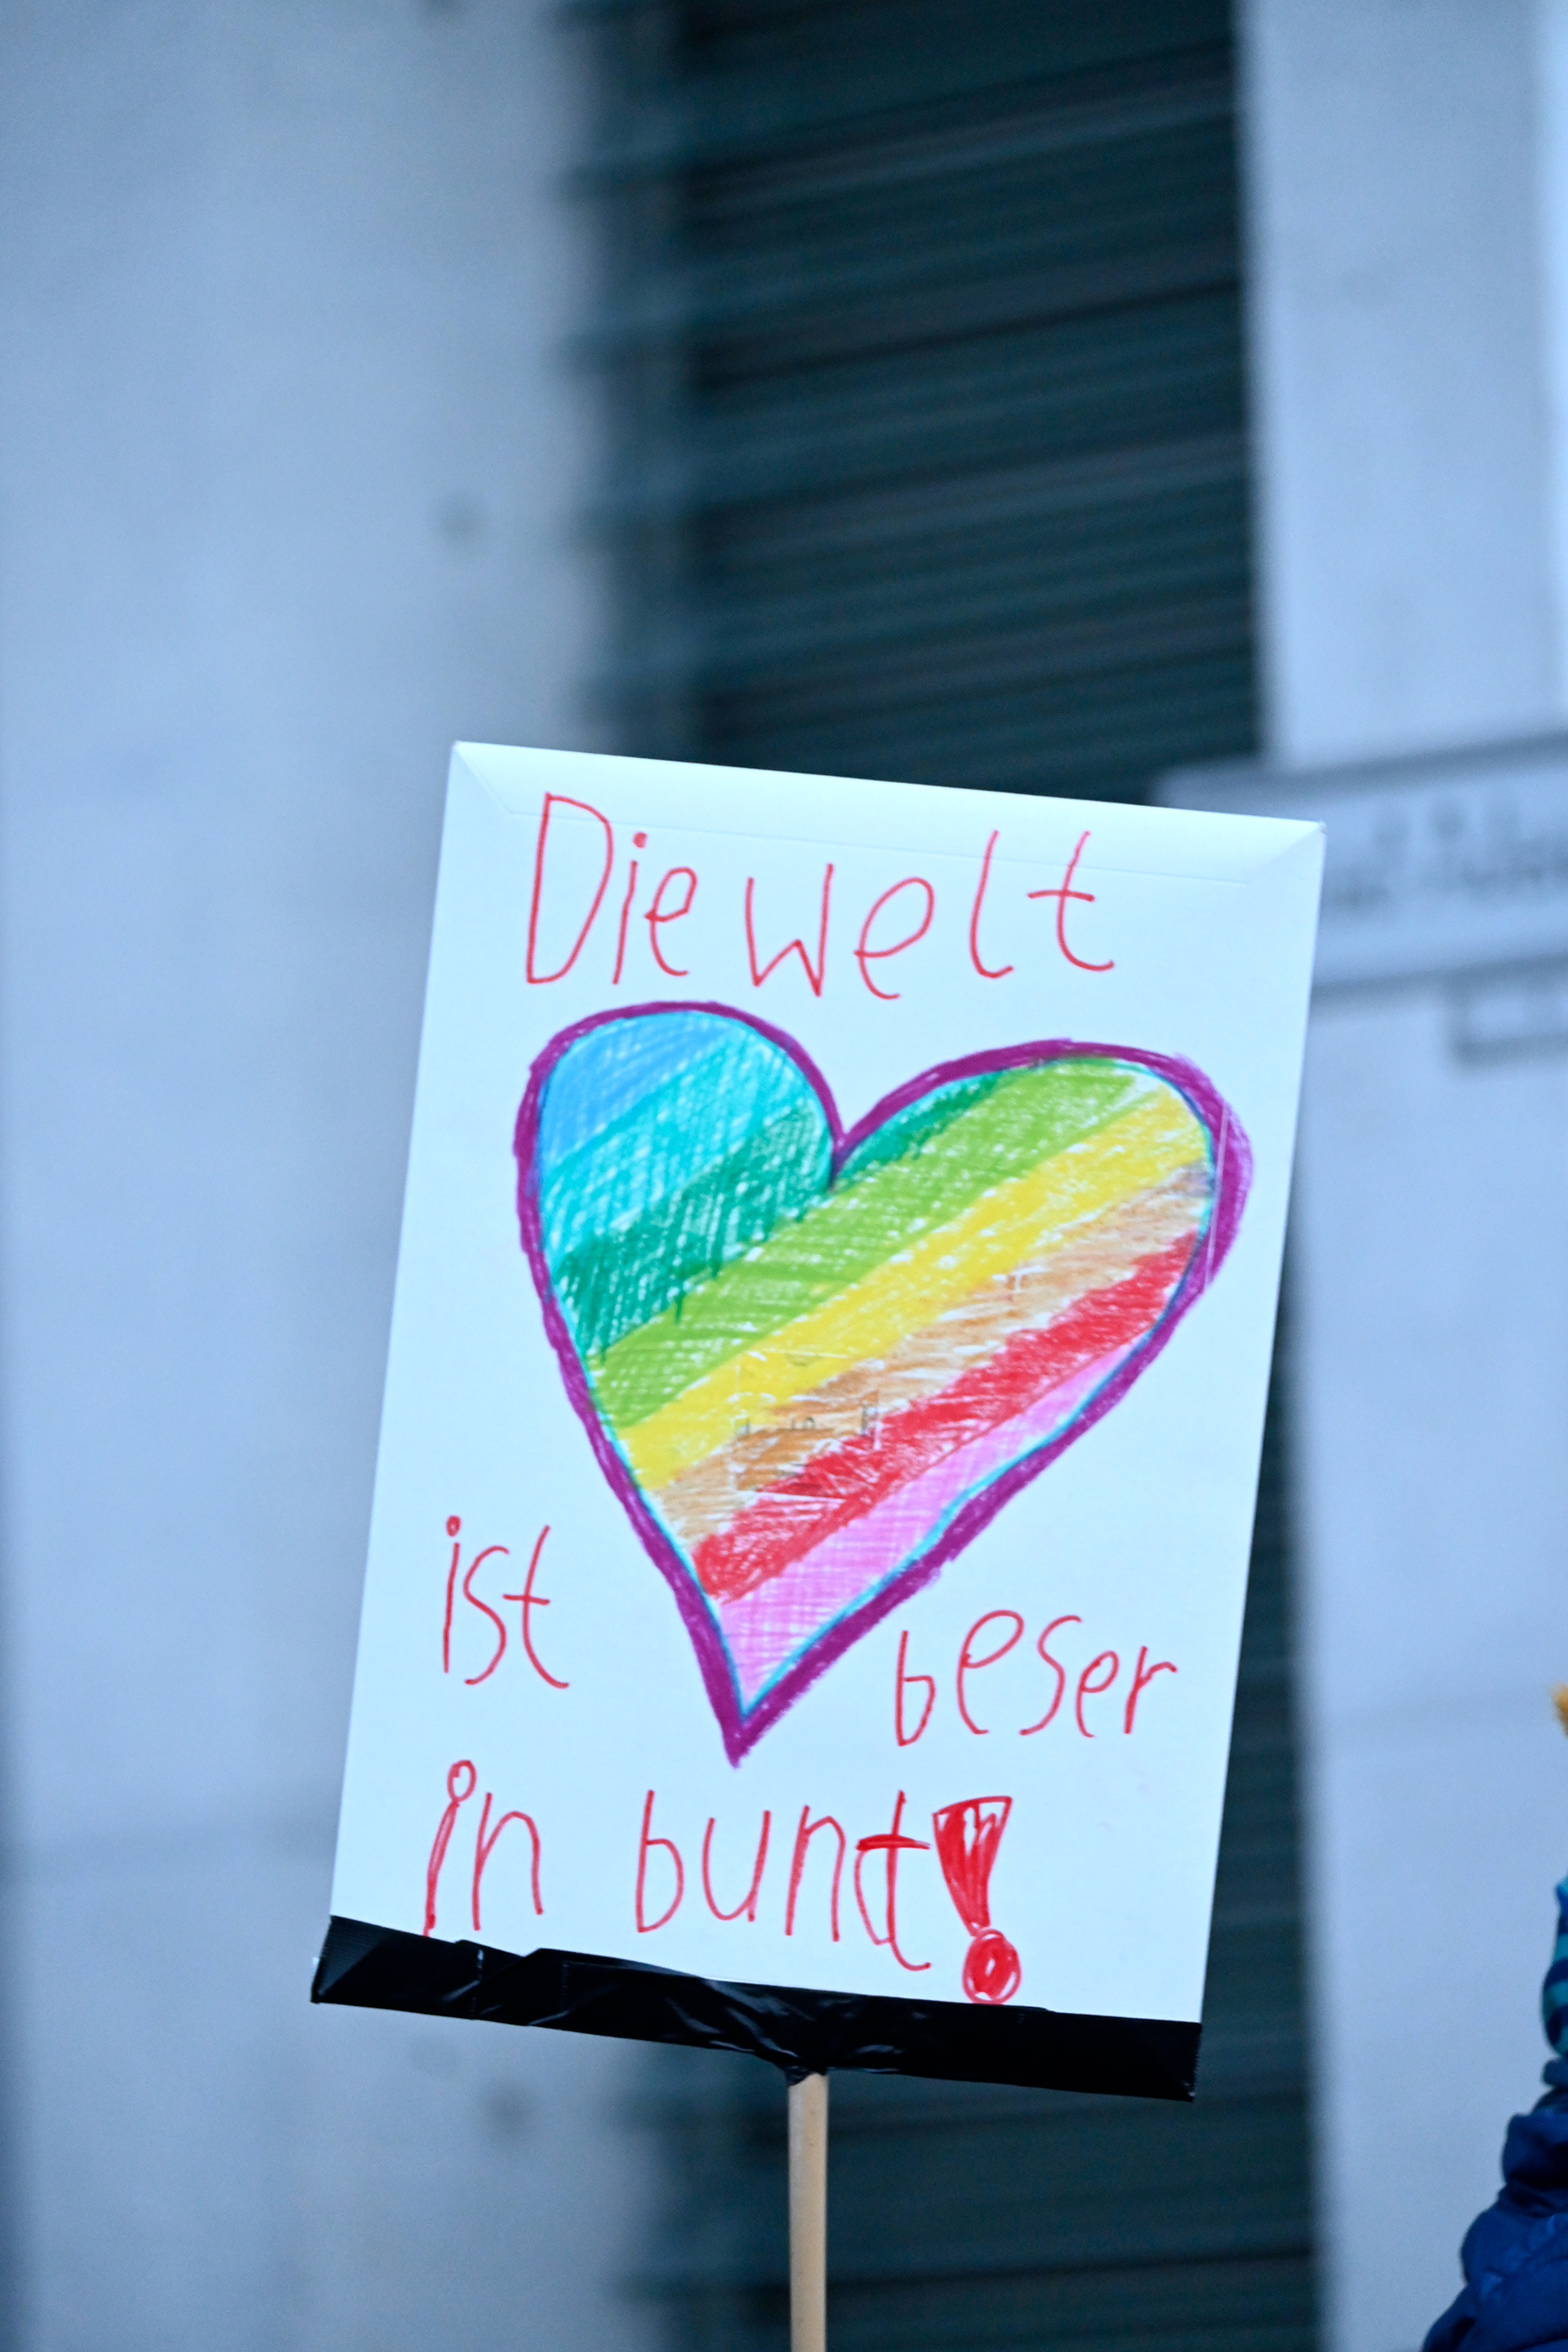 Die welt
ist beser
in bunt!